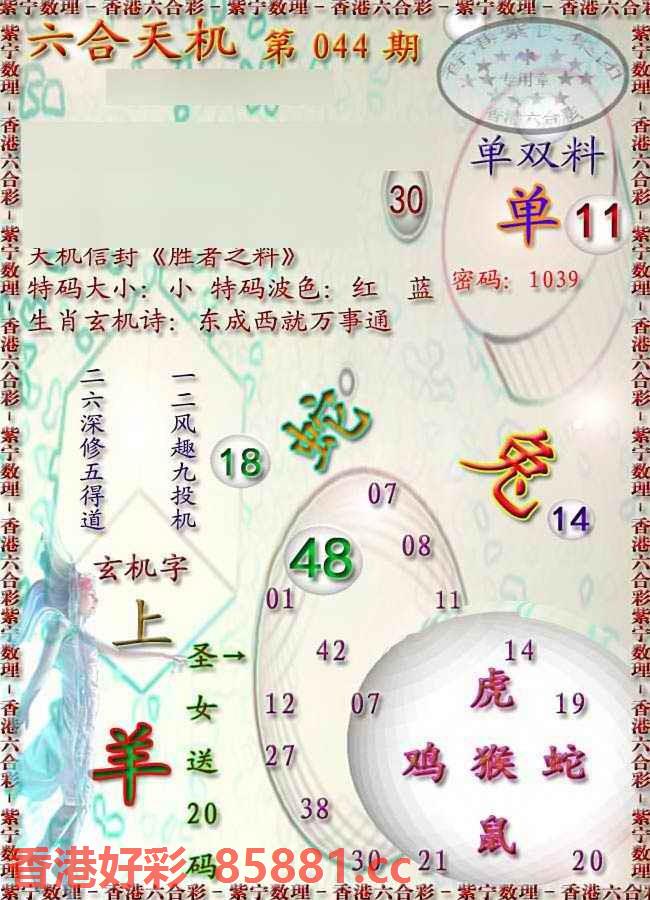 紫宁数理-香港六合彩-紫宁数理-香港六合彩-紫宁数理-香港六合彩
六合天机 第 044 期
专用章
香港六合彩
单双料
单 11
30
天机信封《胜者之料》
特码大小：小 特码波色：红 蓝
密码：1039
生肖玄机诗：东成西就万事通
一二风趣九投机
二六深修五得道
蛇
18
兔
14
07
48
08
玄机字
上
01
11
圣女送20码
→
42
14
虎
12
07
19
羊
27
鸡 猴 蛇
38
鼠
30
21
20
香港好彩 85881.cc
紫宁数理-香港六合彩-紫宁数理-香港六合彩-紫宁数理-香港六合彩